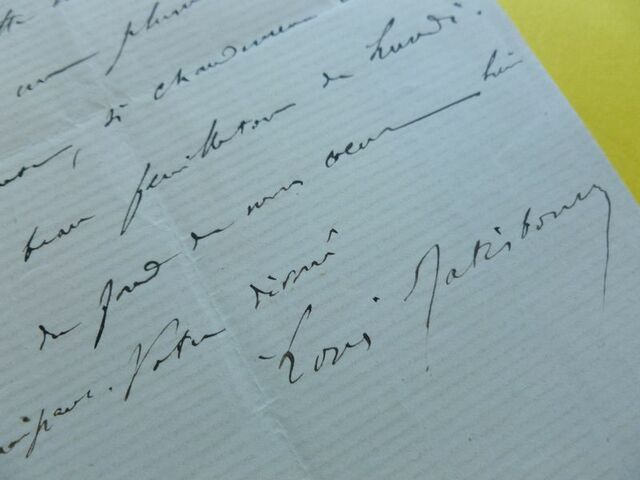 un plus
, si chaudement
beau feuilleton de Lundi.
du fond de mon coeur — 
Votre dévoué
Louis Ratisbonne